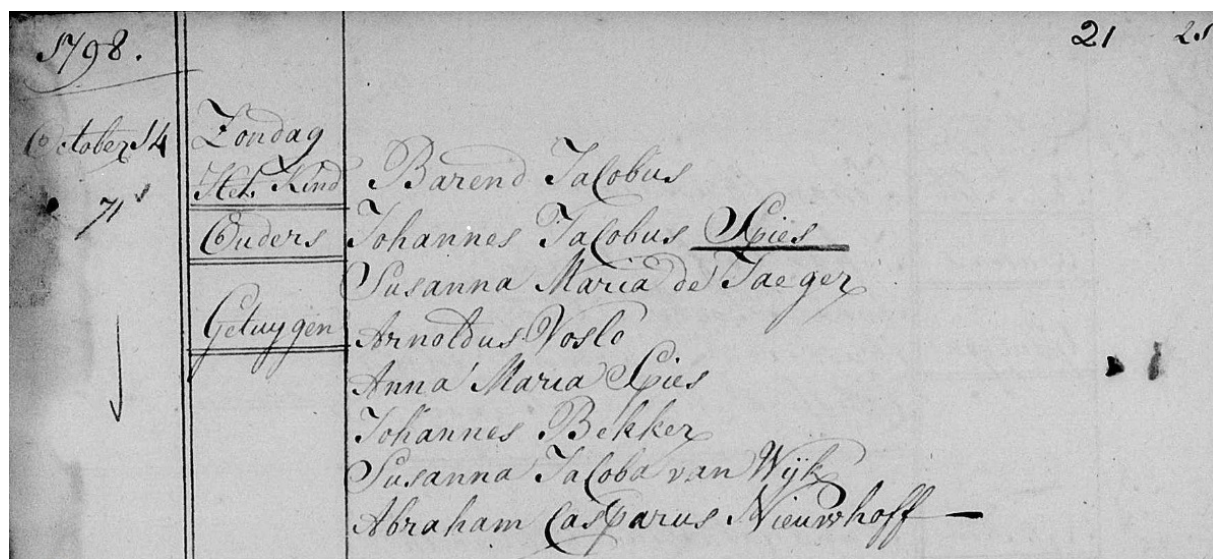 1798. 21
October 14 Zondag
Het Kind Barend Jacobus
71 Ouders Johannes Jacobus Spies
Susanna Maria de Jaeger
Getuygen Arnoldus Voslo
Anna Maria Spies
Johannes Bekker
Susanna Jacoba van Wijk
Abraham Casparus Nieuwhoff